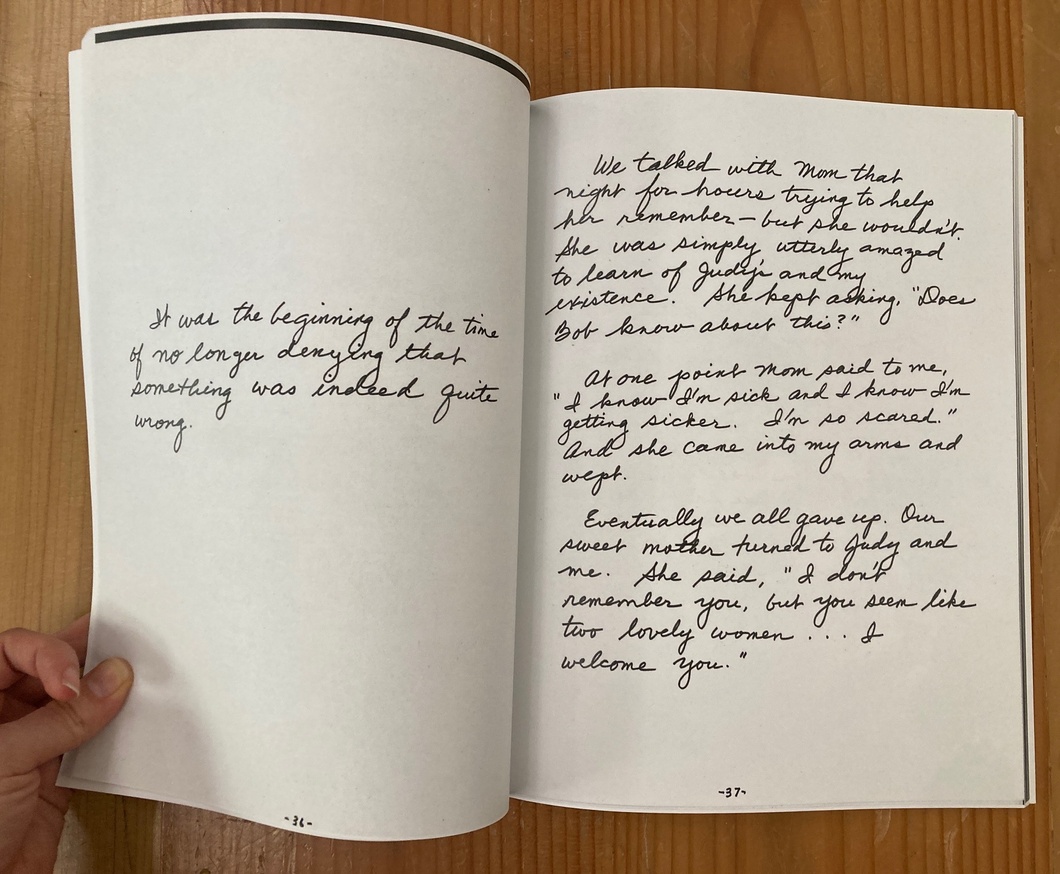 It was the beginning of the time
of no longer denying that
something was indeed quite
wrong.
-36-
We talked with Mom that
night for hours trying to help
her remember — but she wouldn't.
She was simply utterly amazed
to learn of Judy's and my
existence. She kept asking, "Does
Bob know about this?"
At one point Mom said to me,
"I know I'm sick and I know I'm
getting sicker. I'm so scared."
And she came into my arms and
wept.
Eventually we all gave up. Our
sweet mother turned to Judy and
me. She said, "I don't
remember you, but you seem like
two lovely women . . . I
welcome you."
-37-